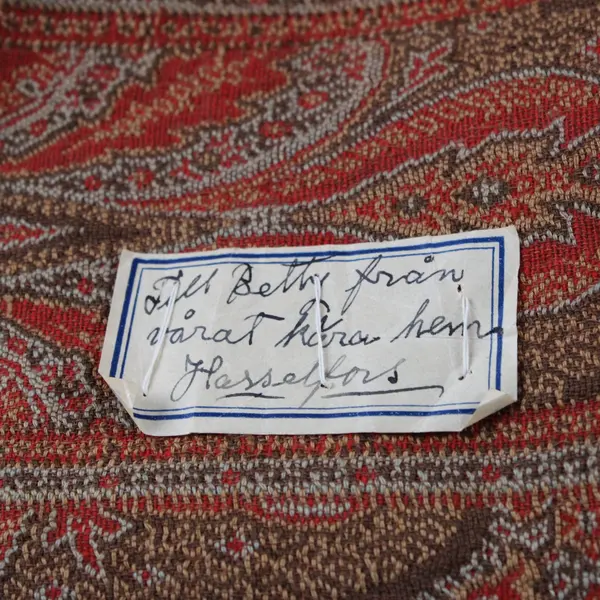 Till Betty från
vårat kära hem
Hasselfors